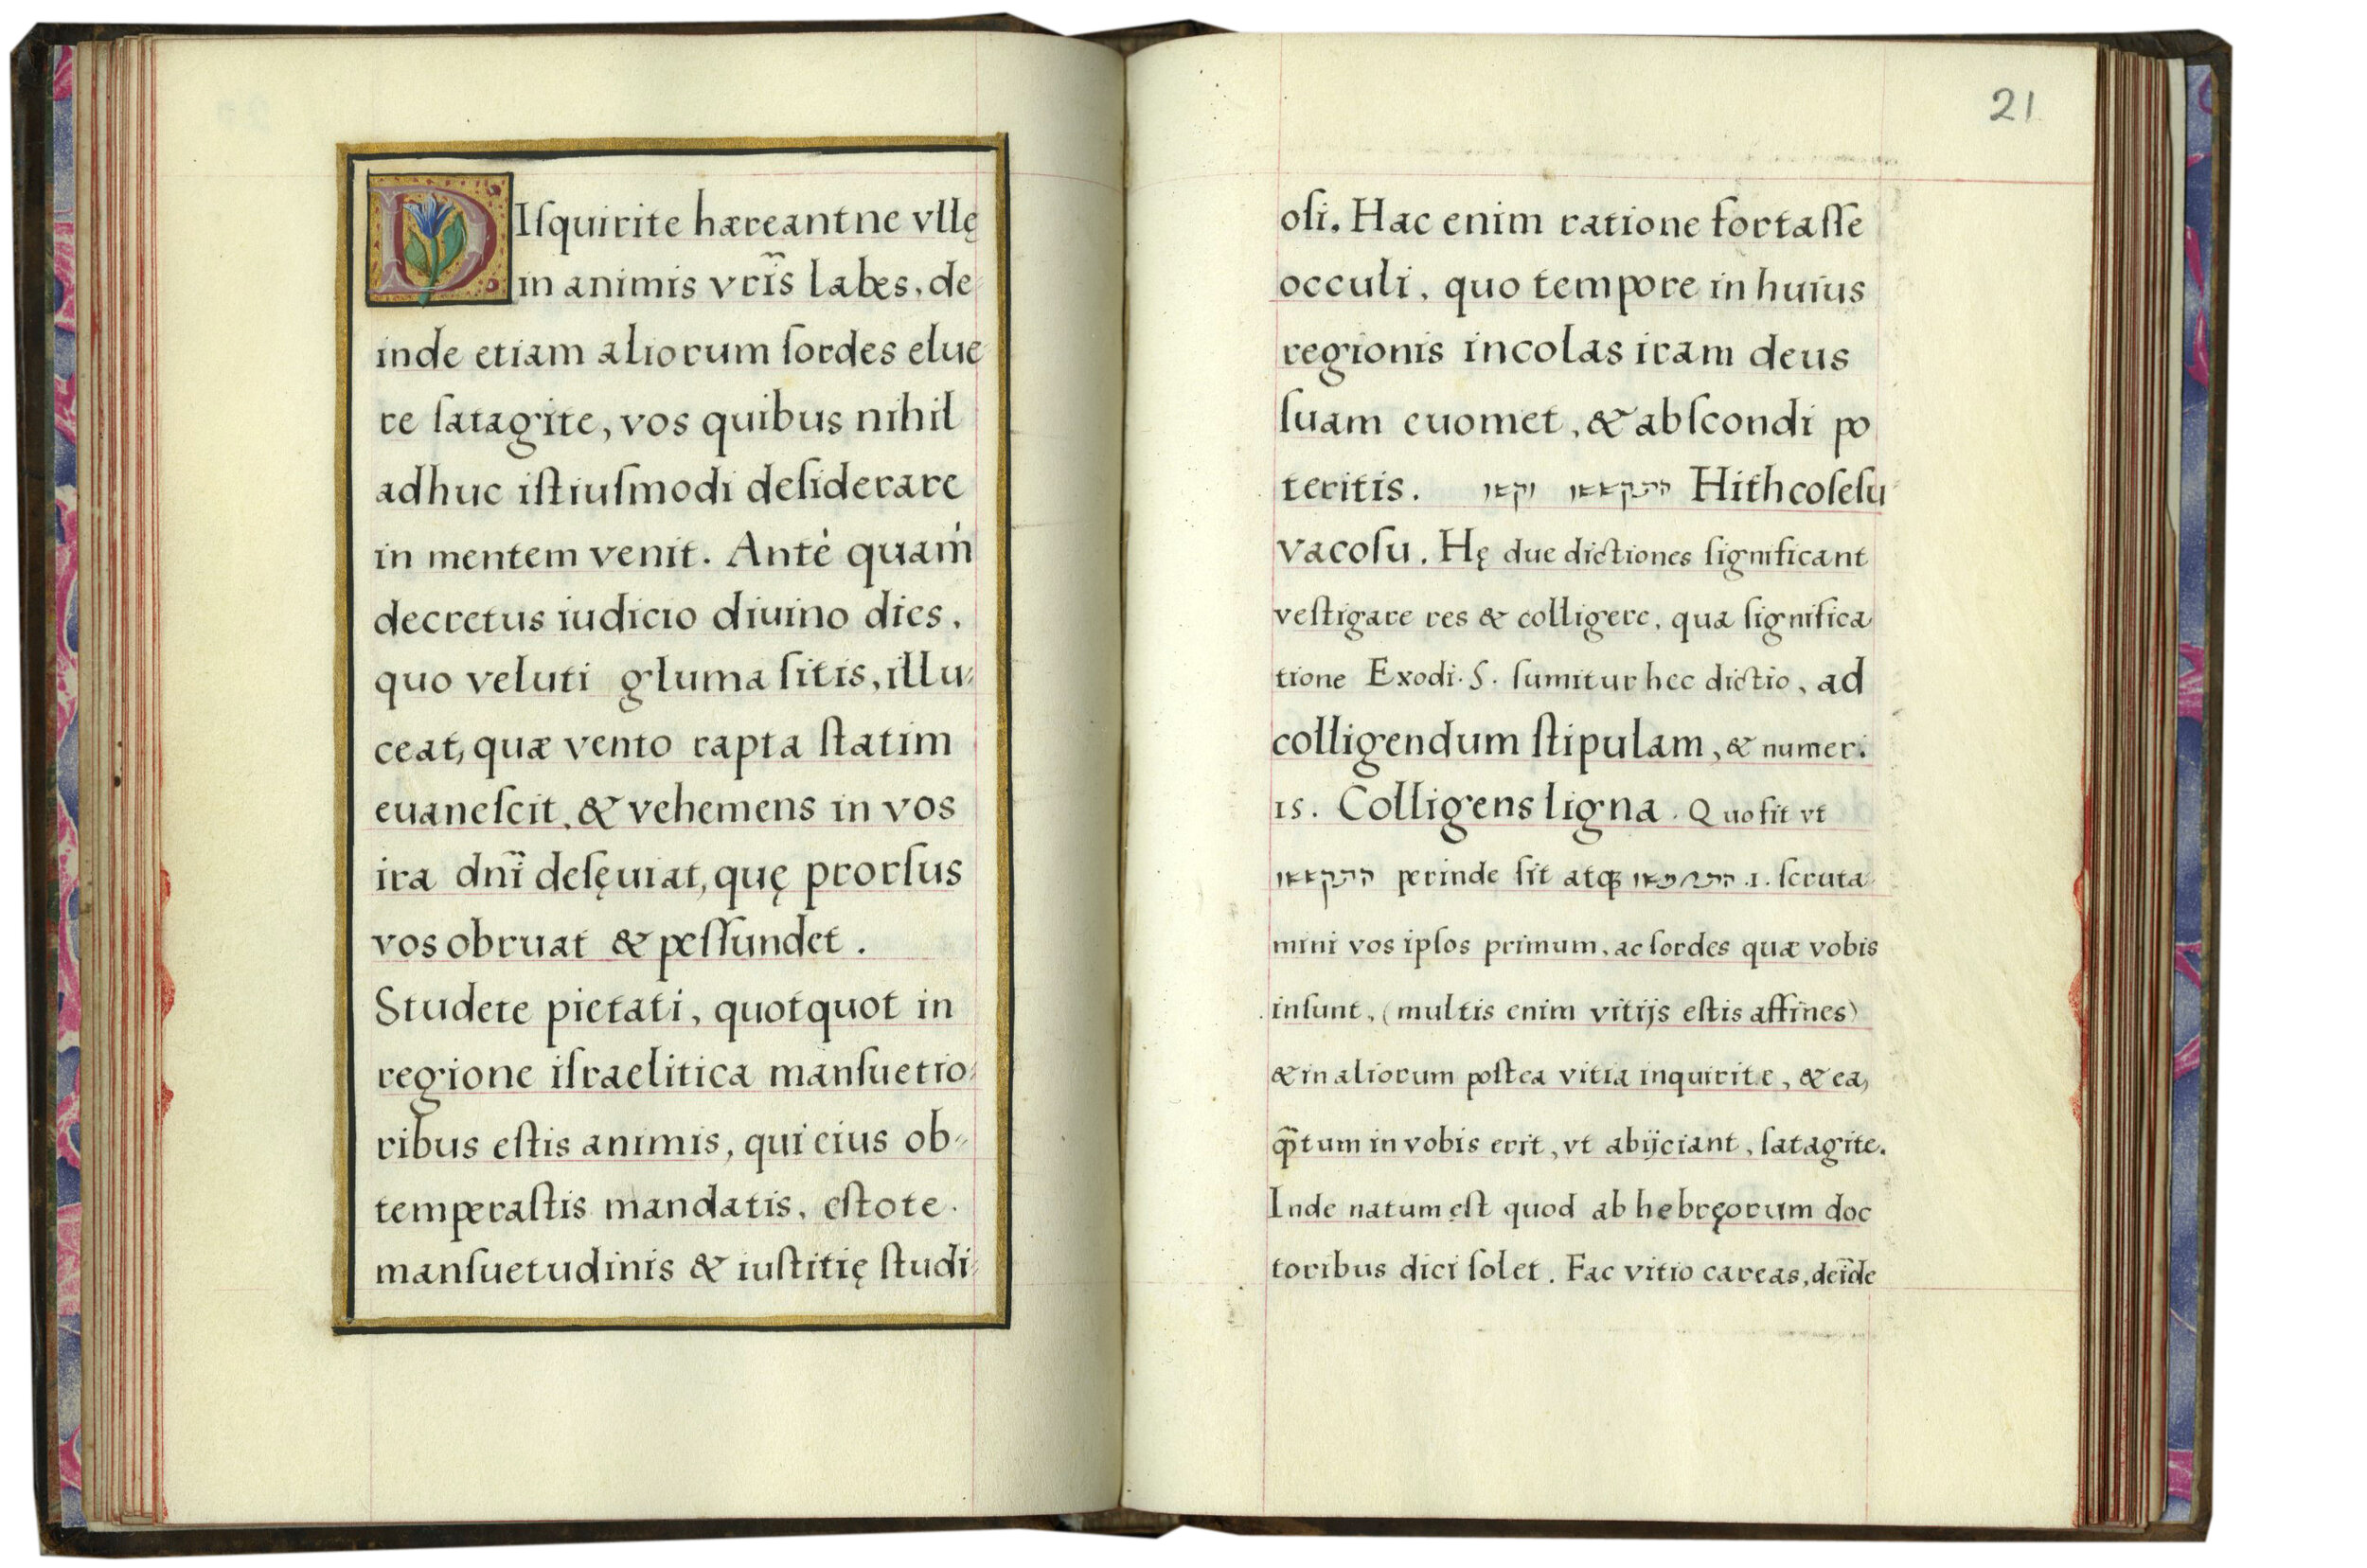 DIſquirite hæreantne vllę
in animis vr̃is labes, de
inde etiam aliorum ſordes elue
re ſatagite, vos quibus nihil
adhuc iſtiuſmodi deſiderare
in mentem venit. Anté quaḿ
decretus iudicio diuino dies,
quo veluti gluma ſitis, illu
ceat, quæ vento rapta ſtatim
euaneſcit, & vehemens in vos
ira dnĩ deſęuiat, quę prorſus
vos obruat & peſſundet.
Studete pietati, quotquot in
regione iſraelitica manſuetio
ribus eſtis animis, qui eius ob
temperaſtis mandatis, eſtote.
manſuetudinis & iuſtitię ſtudi
21
oſi. Hac enim ratione fortaſſe
occuli, quo tempore in huius
regionis incolas iram deus
ſuam euomet, & abſcondi po
teritis. Hithcoſeſu
vacoſu. Hę due dictiones ſignificant
veſtigare res & colligere, qua ſignifica
tione Exodi. 5. ſumitur hec dictio, ad
colligendum ſtipulam, & numer.
15. Colligens ligna. Quo fit vt
perinde ſit atqꝫ .1. ſcruta
mini vos ipſos primum, ac ſordes quæ vobis
inſunt, (multis enim vitijs eſtis affines)
& in aliorum poſtea vitia inquirite, & ea,
qũtum in vobis erit, vt abijciant, ſatagite.
Inde natum eſt quod ab hebręorum doc
toribus dici ſolet. Fac vitio careas, deĩde